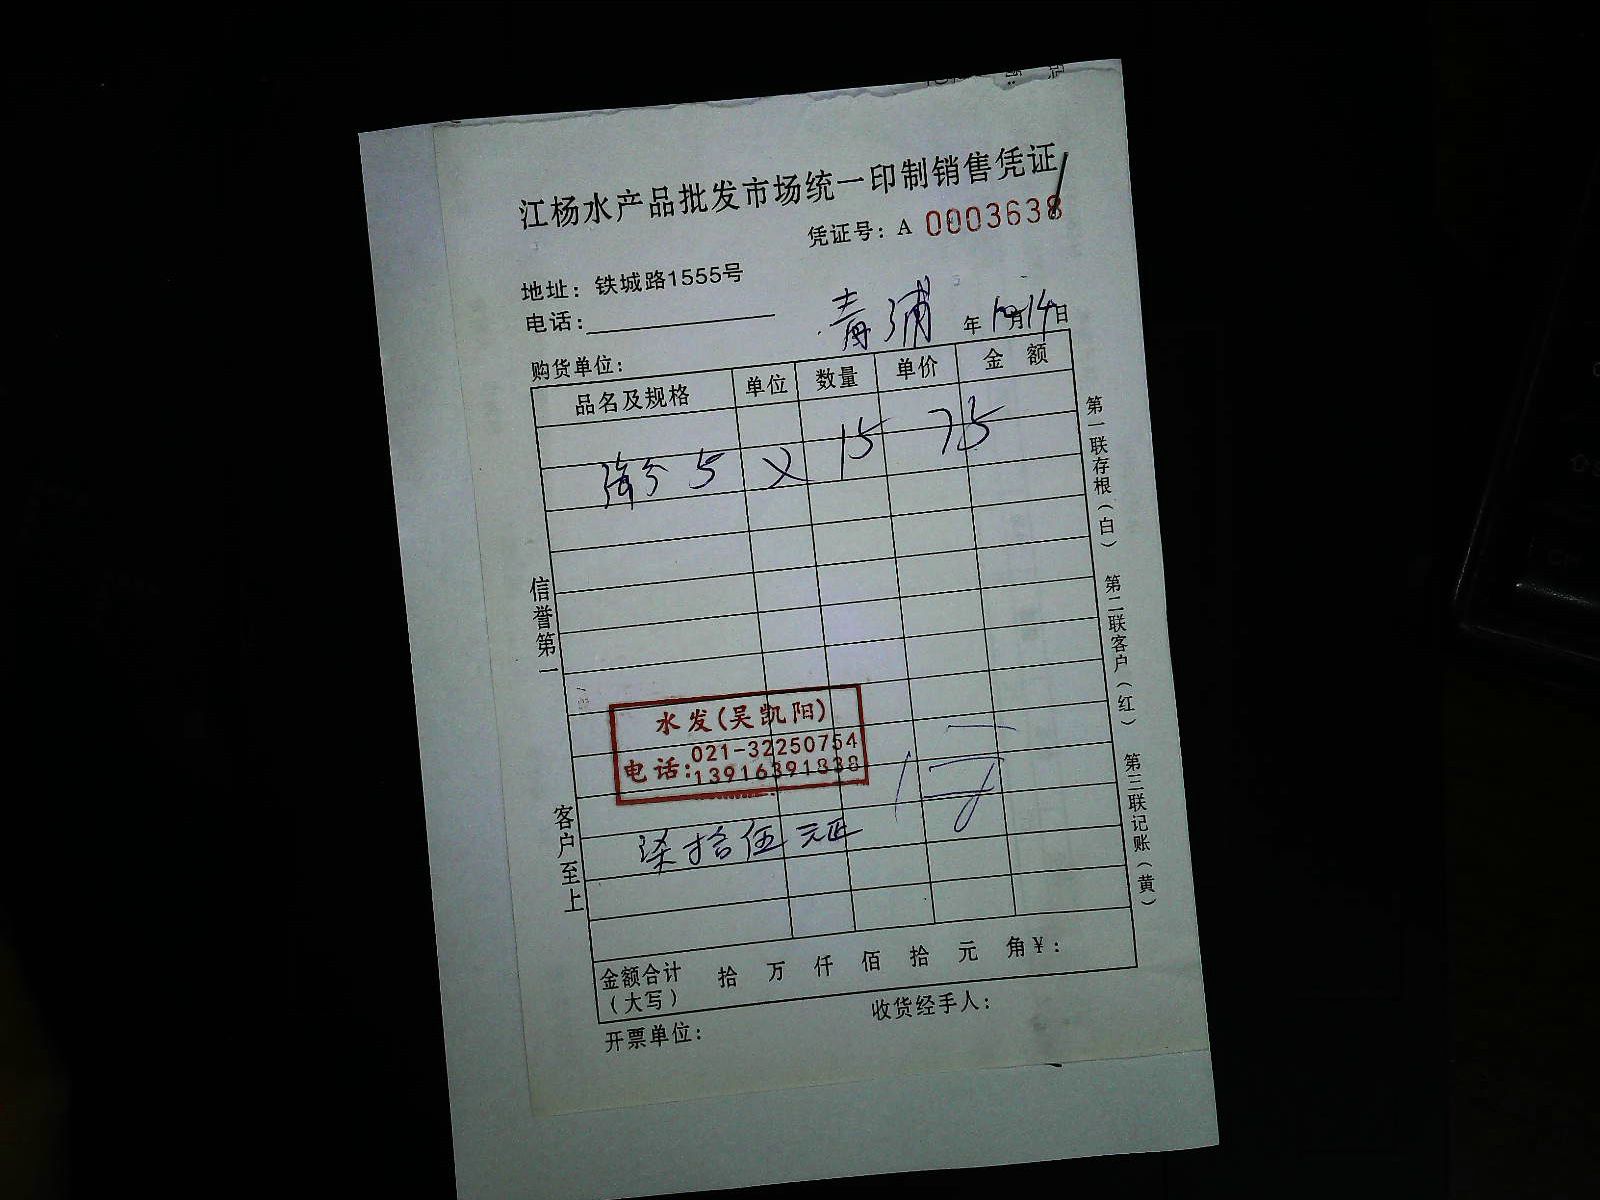 江杨水产品批发市场统一印制销售凭证
凭证号：A 0003638
地址：铁城路1555号
电话：
青浦 年10月14日
购货单位：
品名及规格 单位 数量 单价 金 额
5 X 15 75
水发(吴凯阳)
电话：021-32250754
13916391838
柒拾伍元正
金额合计（大写） 拾 万 仟 佰 拾 元 角￥：
开票单位： 收货经手人：
信誉第一
客户至上
第一联存根（白）
第二联客户（红）
第三联记账（黄）